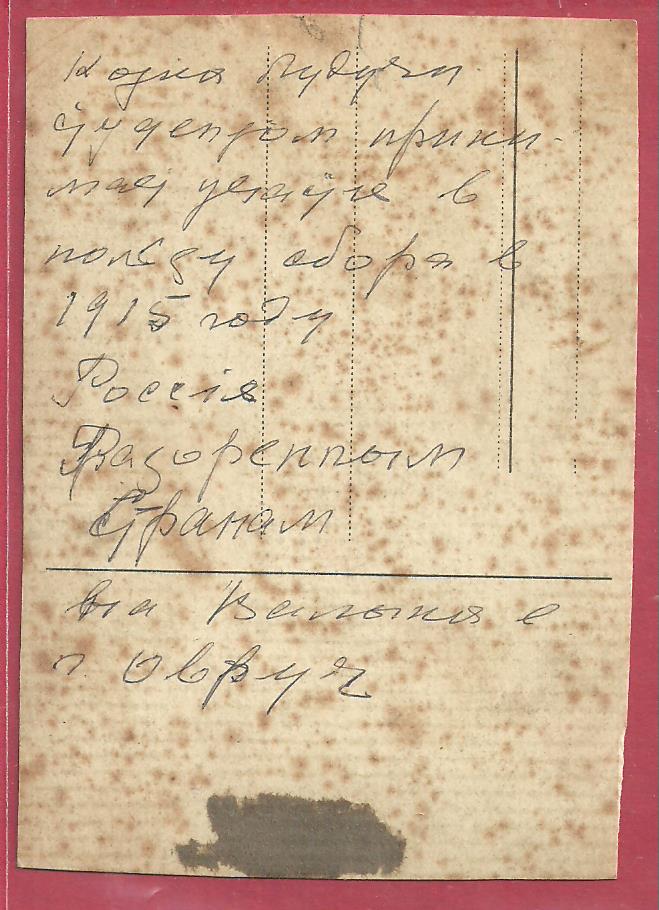 Когда будучи
студентом прини-
мал участие в
пользу сбора в
1915 году
Россія
Разоренным
Странам
на Волыни в
г Овруч